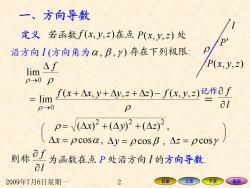 一、方向导数
定义 若函数 f(x, y, z) 在点 P(x, y, z) 处
沿方向 l (方向角为 α, β, γ) 存在下列极限:
lim_{ρ→0} Δf / ρ
= lim_{ρ→0} [f(x+Δx, y+Δy, z+Δz) − f(x, y, z)] / ρ 记作 = ∂f / ∂l
l
P′
ρ
P(x, y, z)
ρ = √((Δx)² + (Δy)² + (Δz)²),
Δx = ρcosα, Δy = ρcosβ, Δz = ρcosγ
则称 ∂f / ∂l 为函数在点 P 处沿方向 l 的方向导数.
2009年7月6日星期一
2